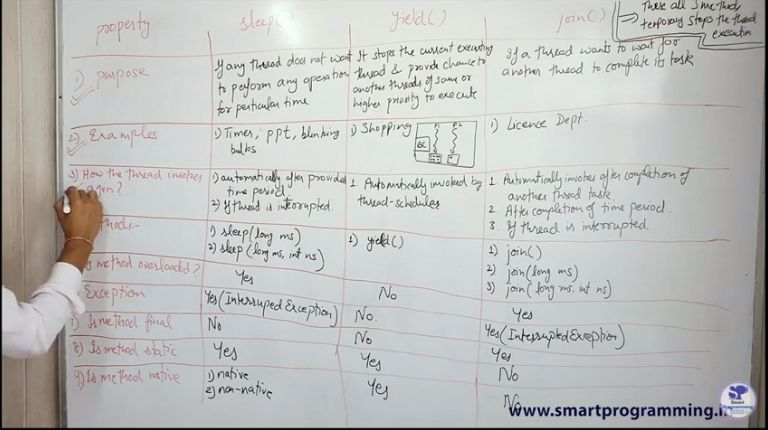 property sleep() yield() join()
These all 3 methods
temporary stops the thread
execution
1) purpose
If any thread does not want
to perform any operation
for perticular time
It stops the current executing
thread & provide chance to
another threads of same or
higher priority to execute
If a thread wants to wait for
another thread to complete its task
2) Examples
1) Timer, ppt, blinking
bulbs
1) Shopping
P1 P2
BC
1) Licence Dept.
3) How the thread invokes
again?
1) automatically after provided
time period
2) If thread is interrupted.
1. Automatically invoked by
thread-scheduler
1. Automatically invokes after completion of
another thread task
2. After completion of time period.
3. If thread is interrupted.
1) sleep(long ms)
2) sleep(long ms, int ns)
1) yield()
1) join()
2) join(long ms)
3) join(long ms, int ns)
Is method overloaded?
Yes
No
Yes
Exception
Yes(InterrupedException)
No.
Yes(InterruptedException)
7) Is method final
No
No
Yes
8) Is method static
Yes
Yes
No
9) Is method native
1) native
2) non-native
Yes
No
www.smartprogramming.in
SP
Smart
Programming